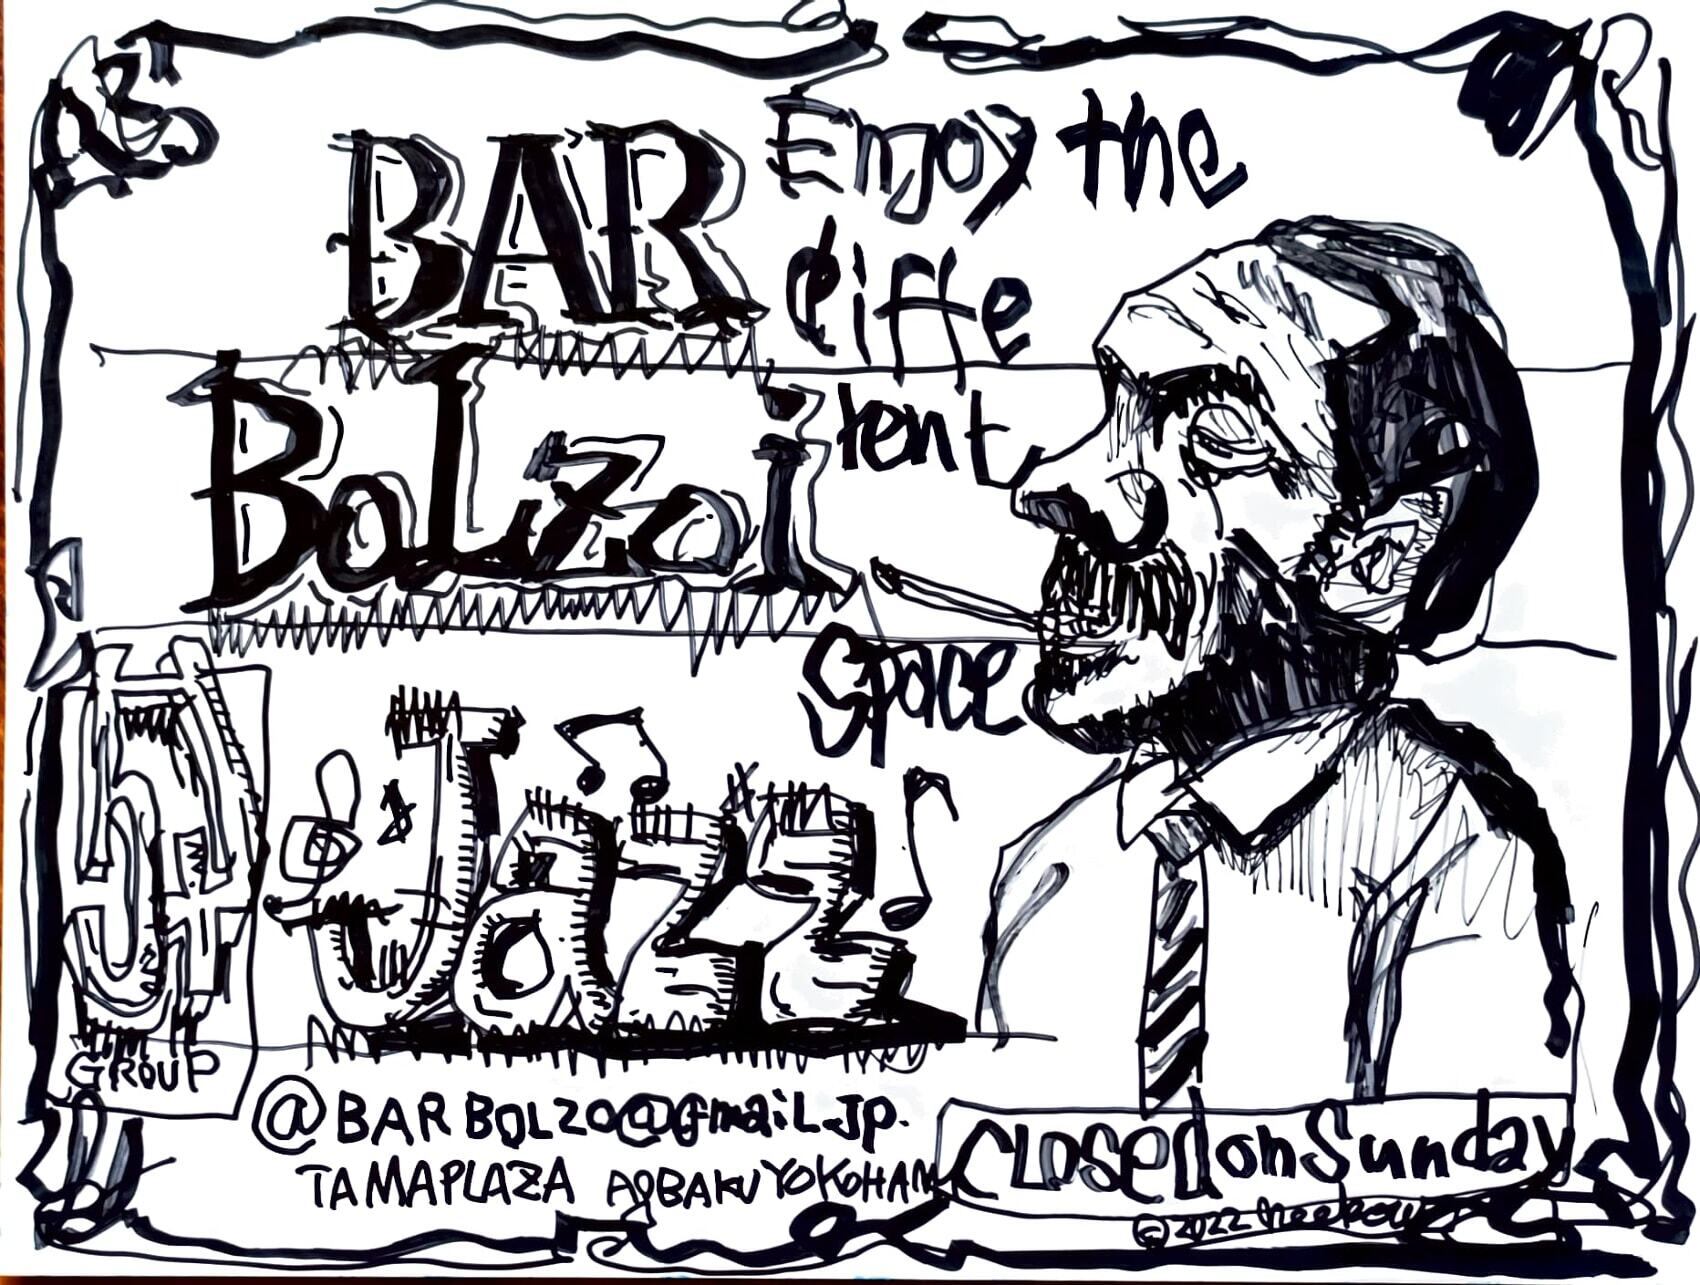 BAR
BoLzoi
Enjoy the
diffe
rent
Space
Jazz
GROUP
@BARBOLZO@GmaiL.Jp.
TAMAPLAZA AOBAKU YOKOHAMA
CLOSED on Sunday
©2022